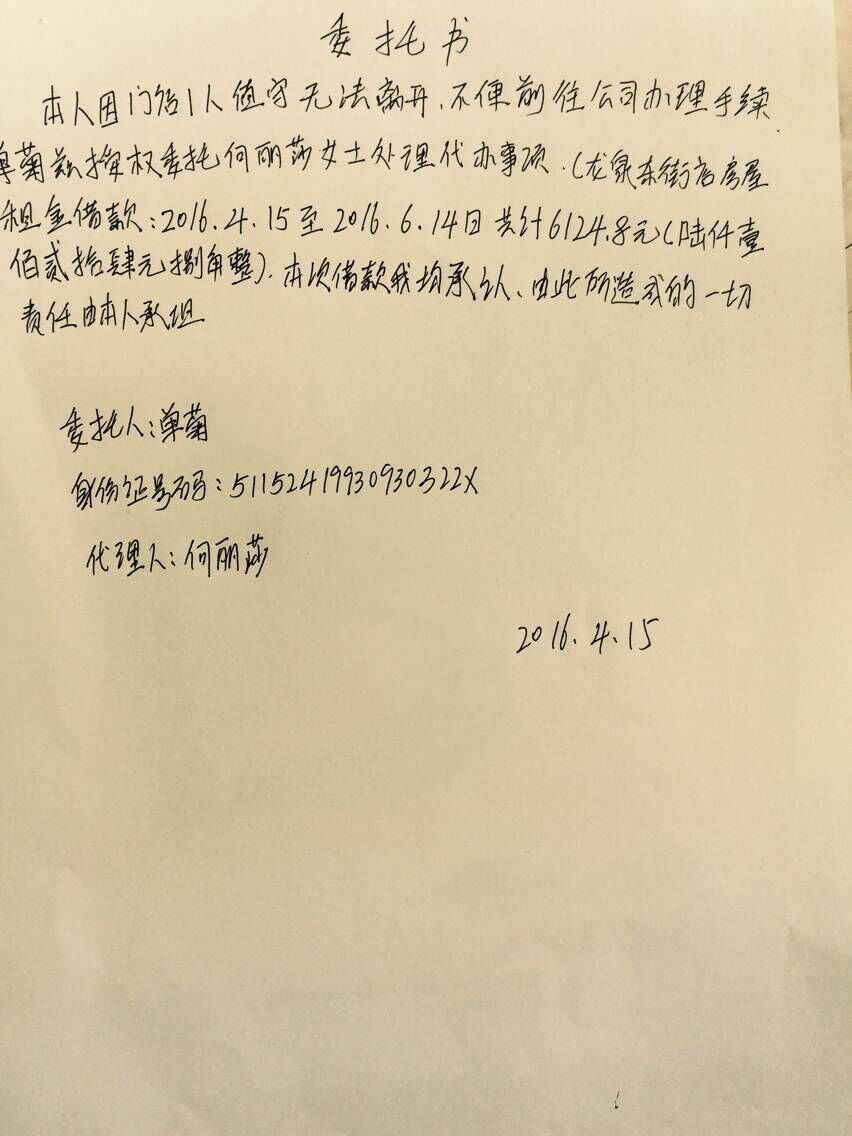 委托书
本人因门店1人值守无法离开,不便前往公司办理手续
单菊兹授权委托何丽莎女士处理代办事项.(龙泉东街店房屋
租金借款:2016.4.15至2016.6.14日共计6124.8元(陆仟壹
佰贰拾肆元捌角整).本次借款我均承认、由此所造成的一切
责任由本人承担
委托人:单菊
身份证号码:51152419930930322X
代理人:何丽莎
2016.4.15